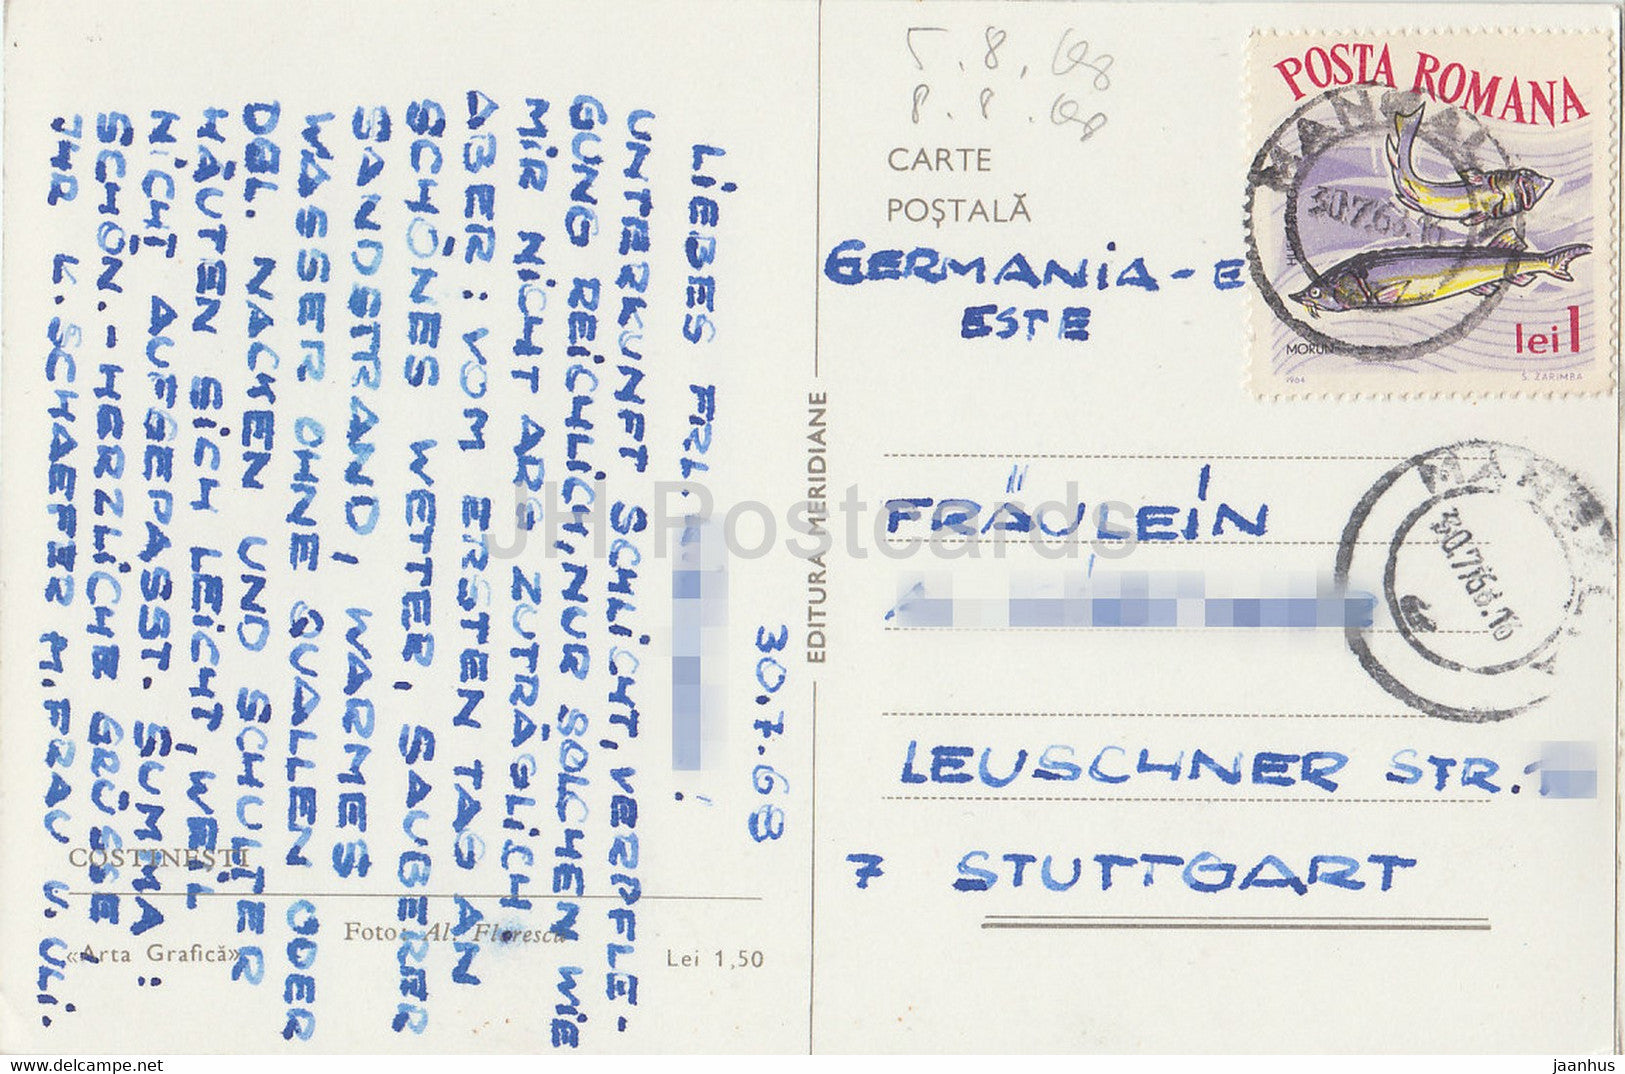 30.7.68
LIEBES FRL.
UNTERKUNFT SCHLICHT, VERPFLE-
GUNG REICHLICH, NUR SOLCHEN WIE
MIR NICHT ARG ZUTRÄGLICH
ABER: VOM ERSTEN TAG AN
SCHÖNES WETTER, SAUBERER
SANDSTRAND, WARMES
WASSER OHNE QUALLEN ODER
DGL. NACKEN UND SCHULTER
HÄUTEN SICH LEICHT, WEIL
NICHT AUFGEPASST. SUMMA:
SCHÖN. - HERZLICHE GRÜSSE
IHR K. SCHAEFER M. FRAU U. ULI.
COSTINEȘTI
Foto: Al. Florescu
«Arta Grafică»
Lei 1,50
EDITURA MERIDIANE
5.8.68
8.8.68
CARTE
POȘTALĂ
GERMANIA - E
ESTE
FRÄULEIN
LEUSCHNER STR.
7 STUTTGART
POSTA ROMANA
MORUN
lei 1
1964
S. ZARIMBA
MANGALIA
30.7.68.16
MANGALIA
30.7.68.16
JH Postcards
delcampe.net
jaanhus